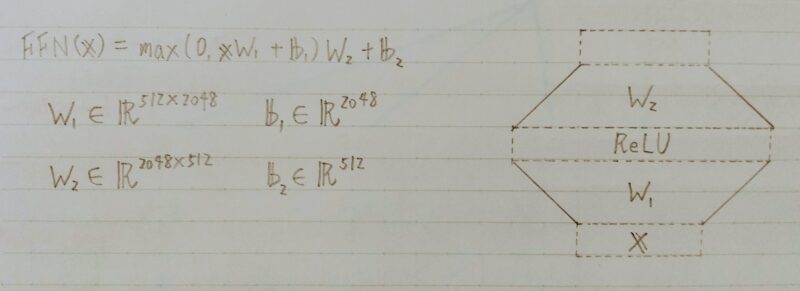 FFN(x) = max(0, xW₁ + b₁)W₂ + b₂
W₁ ∈ ℝ^{512×2048} b₁ ∈ ℝ^{2048}
W₂ ∈ ℝ^{2048×512} b₂ ∈ ℝ^{512}
W₂
ReLU
W₁
x